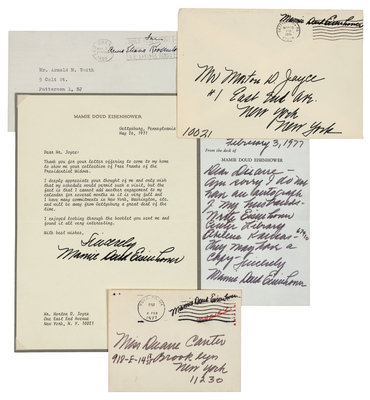 Mr. Arnold M. Tooth
5 Colt St.
Patterson 1, NJ
Mamie Doud Eisenhower
Mr Morton D. Joyce
#1 East End Av.
New York
New York
10021
MAMIE DOUD EISENHOWER
Gettysburg, Pennsylvania
May 26, 1971
Dear Mr. Joyce:
Thank you for your letter offering to come to my home
to show me your collection of Free Franks of the
Presidential Widows.
I deeply appreciate your thought of me and only wish
that my schedule would permit such a visit, but the
fact is that I cannot add another engagement to my
calendar for several months as it is very full and
I have many commitments in New York, Washington, etc.
and will be away from Gettysburg a great deal of the
time.
I enjoyed looking through the booklet you sent me and
found it all very interesting.
With best wishes,
Sincerely
Mamie Doud Eisenhower
Mr. Morton D. Joyce
One East End Avenue
New York, N. Y. 10021
February 3, 1977
From the desk of
MAMIE DOUD EISENHOWER
Dear Duane—
Am sorry I do not
have an autograph
of my husband—
Write Eisenhower
Center Library
Abilene Kansas—
they may have a
copy—
Sincerely
Mamie Doud Eisenhower
Mamie Doud Eisenhower
1977
Miss Duane Canter
918-E-14 St
Brooklyn
New York
11230